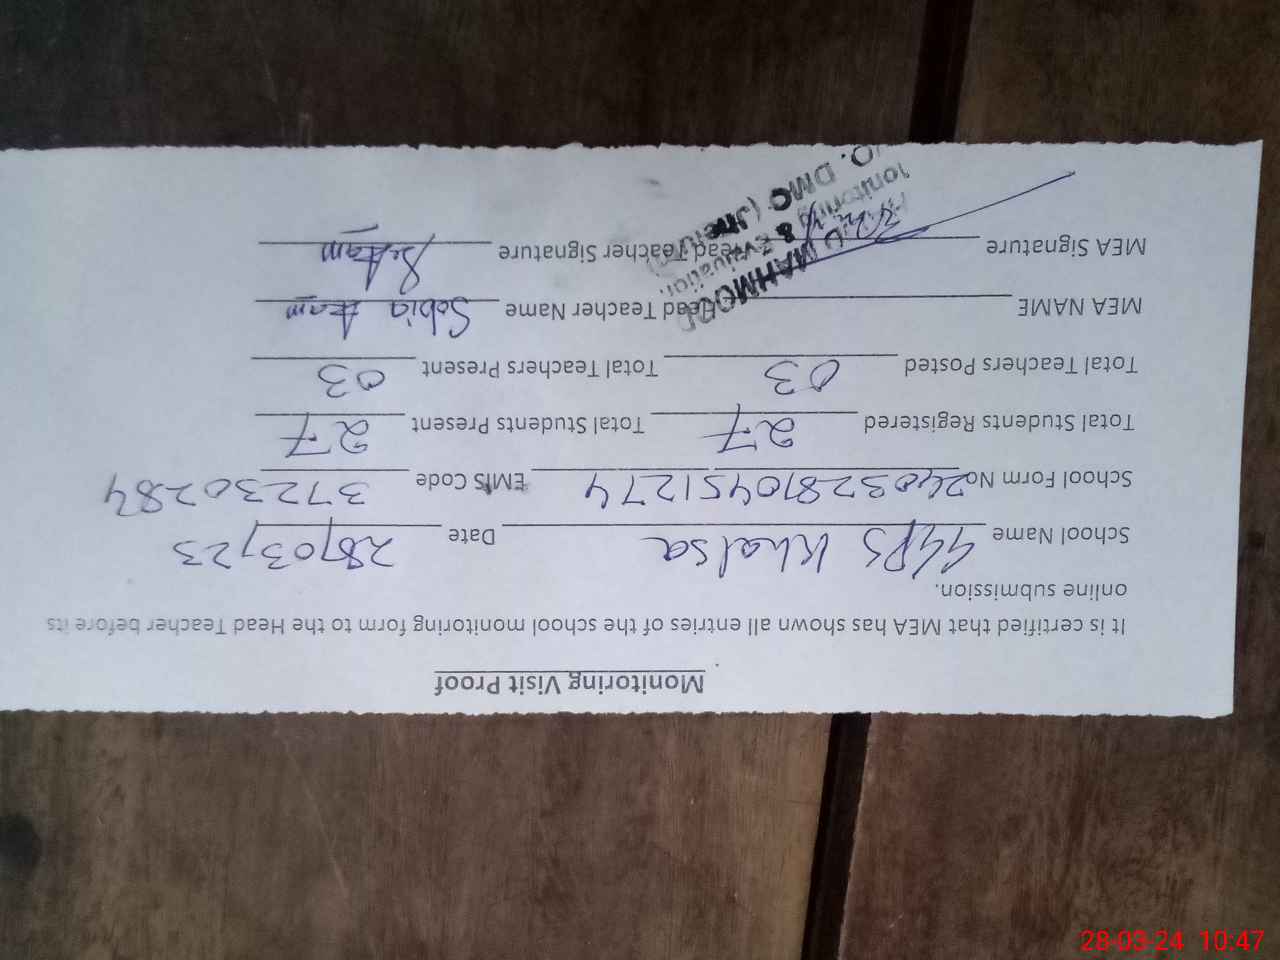 Monitoring Visit Proof
It is certified that MEA has shown all entries of the school monitoring form to the Head Teacher before its
online submission.
School Name GGPS Khalsa Date 28/03/23
School Form No 24032810451274 EMIS Code 37230284
Total Students Registered 27 Total Students Present 27
Total Teachers Posted 03 Total Teachers Present 03
MEA NAME Head Teacher Name Sobia Azam
MEA Signature Head Teacher Signature
MAHMOOD
Monitoring & Evaluation
O. DMO (Jhelum)
28-03-24 10:47